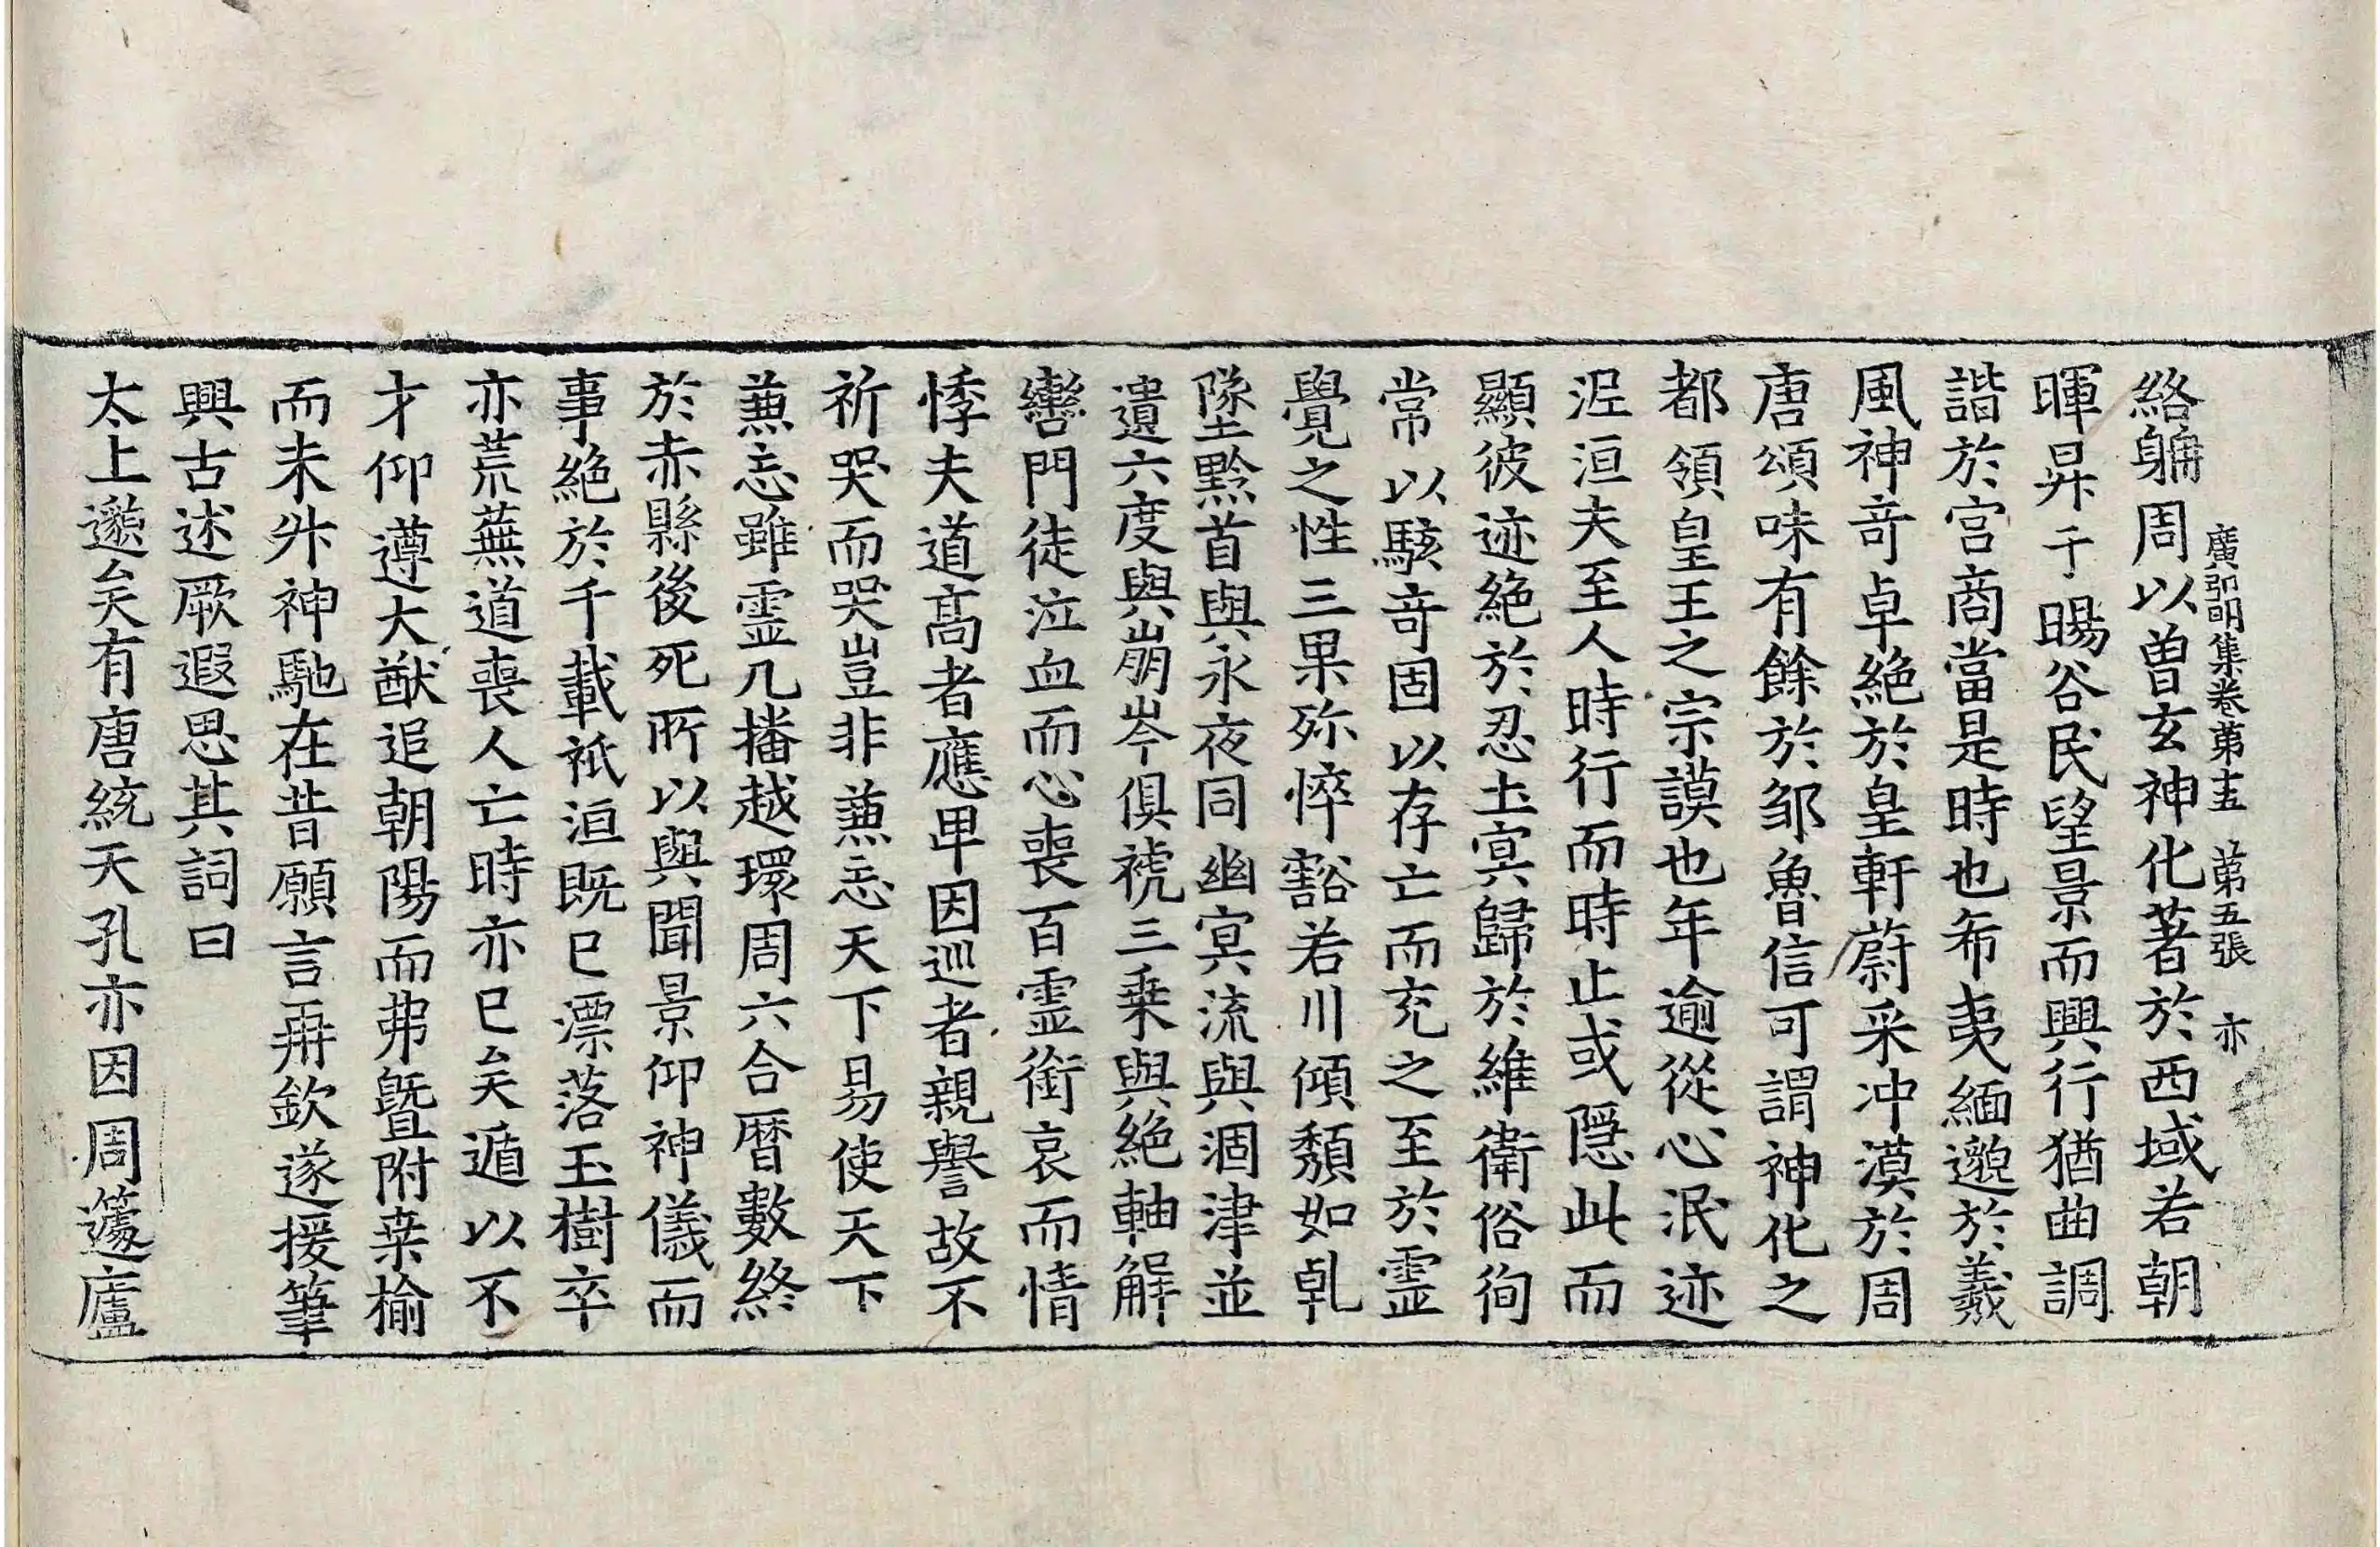 廣弘明集卷第十五　第五張　亦
絡觿周以曾玄神化著於西域若朝
暉昇于暘谷民望景而興行猶曲調
諧於宫商當是時也希夷緬邈於羲
風神竒卓絶於皇軒蔚采冲漠於周
唐頌味有餘於邹魯信可謂神化之
都領皇王之宗謨也年逾從心泯迹
泥洹夫至人時行而時止或隠此而
顯彼迹絶於忍土㝠歸於維衛俗徇
常以駭竒固以存亡而充之至於霊
覺之性三果殄悴豁若川傾頽如乹
墜黔首與永夜同幽㝠流與涸津並
遺六度與崩岑俱褫三乗與絶軸解
轡門徒泣血而心喪百霊銜哀而情
悸夫道髙者應卑因巡者親譽故不
祈哭而哭豈非蕙忘天下易使天下
蕙忘雖霊几播越環周六合暦數終
於赤縣後死所以與聞景仰神儀而
事絶於千載祇洹既已漂落玉樹卒
亦荒蕪道喪人亡時亦已矣遁以不
才仰遵大猷追朝陽而弗暨附桒榆
而未升神馳在昔願言再欽遂援筆
興古述厥遐思其詞曰
太上邈矣有唐統天孔亦因周蘧廬